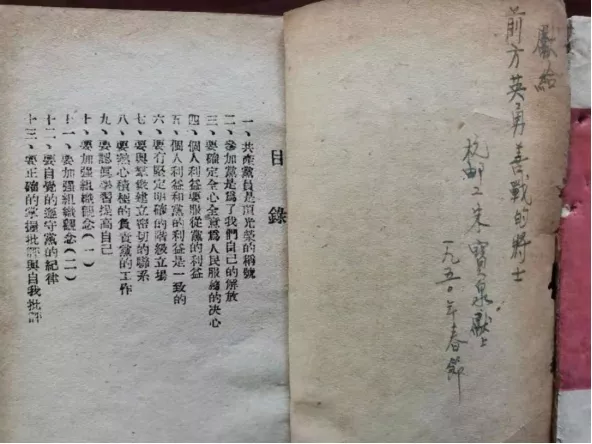 獻給
前方英勇善戰的將士
杭郵工朱寶泉獻上
一九五〇年春節
目錄
一、共產黨員是頂光榮的稱號
二、參加黨是爲了我們自己的解放
三、要確定全心全意爲人民服務的决心
四、個人利益要服從黨的利益
五、個人利益和黨的利益是一致的
六、要有堅定明確的階級立場
七、要與羣衆建立密切的聯系
八、要熱心積極的負責黨的工作
九、要認眞學習提高自己
十、要加强組織觀念（一）
十一、要加强組織觀念（二）
十二、要自覺的遵守黨的紀律
十三、要正確的掌握批評與自我批評